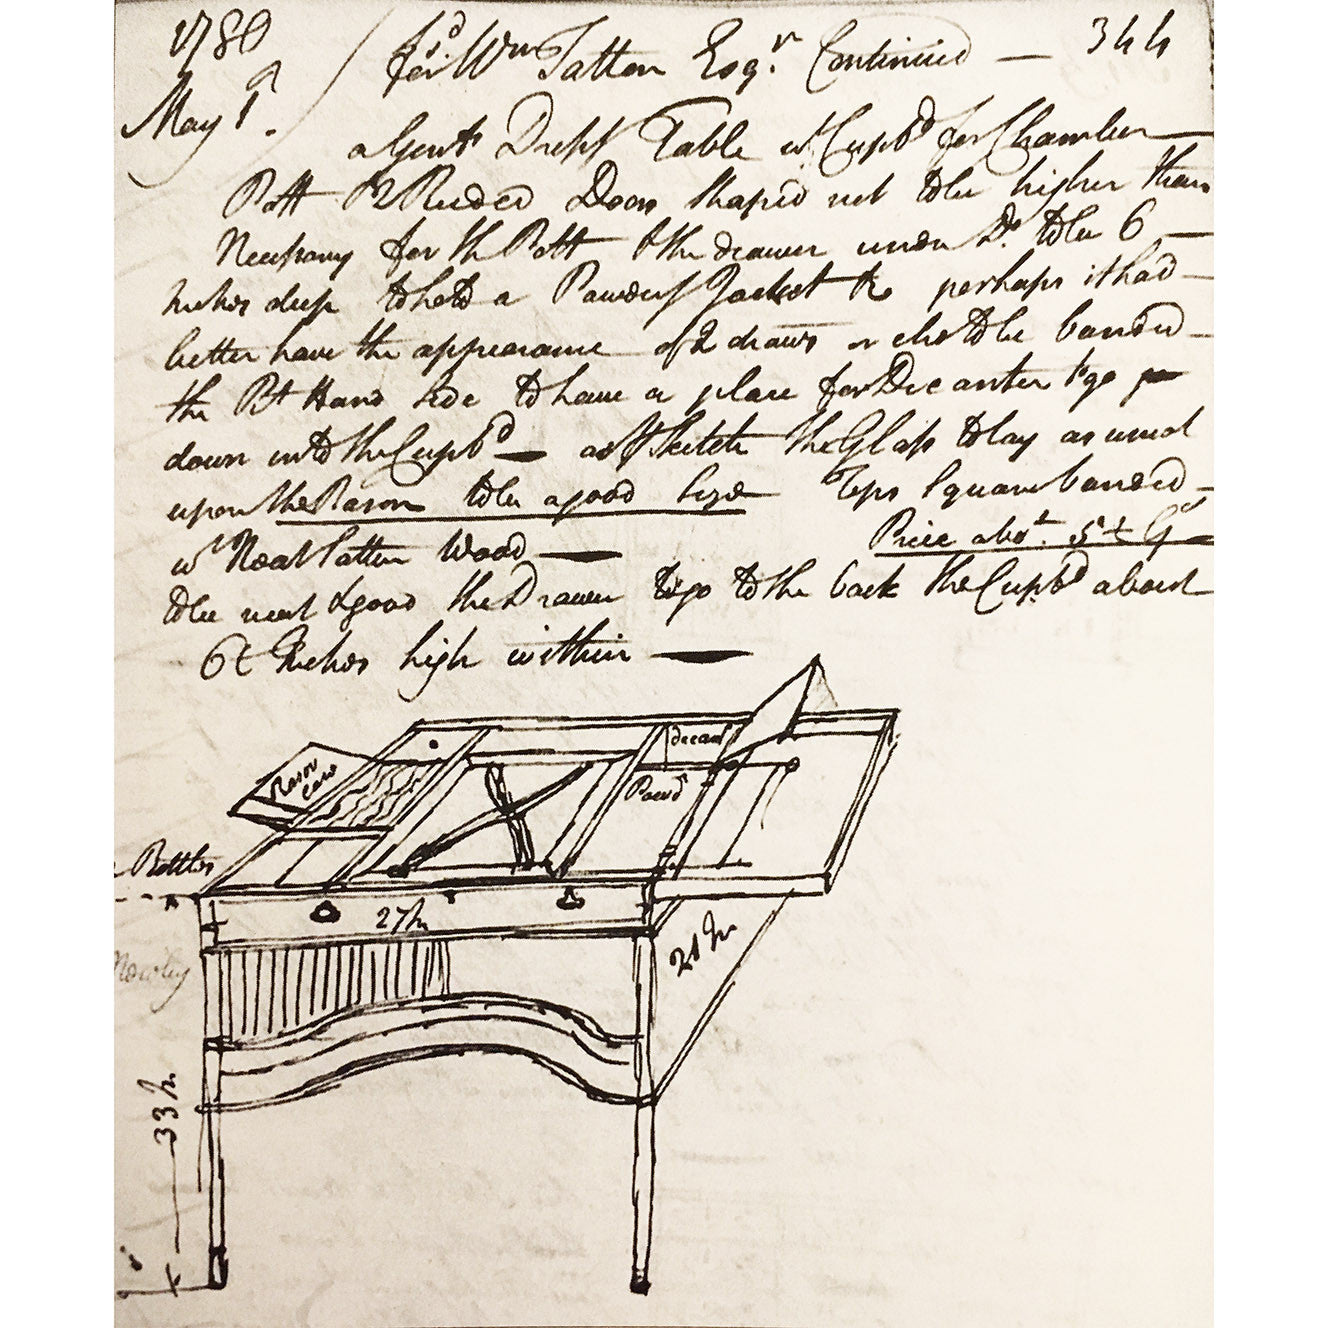 1786 for Wm Tatton Esqr. Continued — 344
May 1st.
a Gents Dress Table wt Cupbd for Chamber
Pott & 2 Reeded Doors Shaped not to be higher than
Necessary for the Pott & the drawer under Do to be 6
Inches deep to hold a Powdg Jacket &c perhaps it had
better have the appearance of 2 draws or else to be banded
the Rt Hand side to have a place for Decanter to go
down into the Cupbd — as Pr Sketch the Glass to lay as usual
upon the Rasors to be a good Size Tops Square banded
wt Neat Patten Wood — Price abot. 5 £ G
to be neat & good the Drawer to go to the back the Cupbd about
6½ Inches high within —
Decantr
Rasor
case
Powdr
Bottles
27 In
21 In
33 In